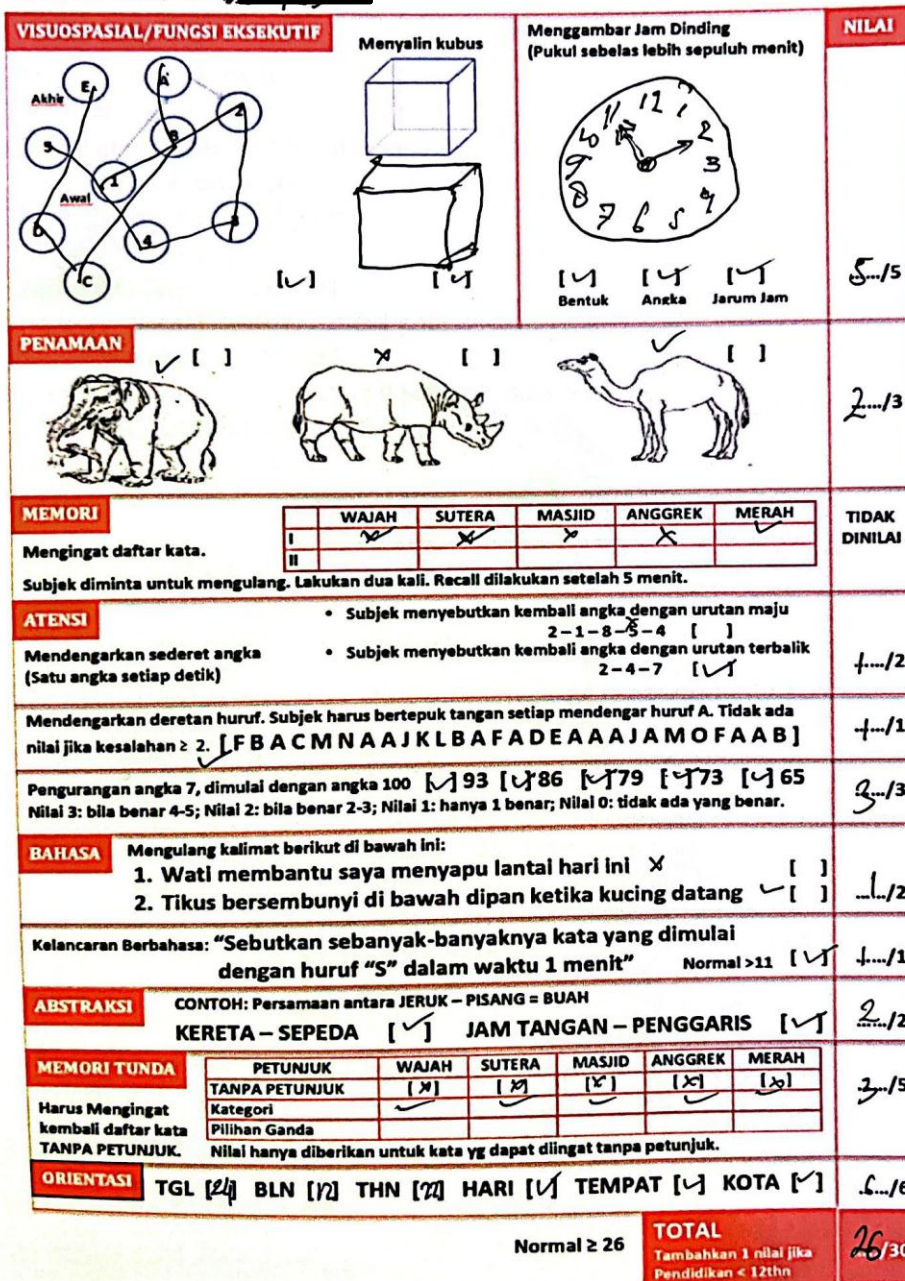 VISUOSPASIAL/FUNGSI EKSEKUTIF
Menyalin kubus
Menggambar Jam Dinding
(Pukul sebelas lebih sepuluh menit)
NILAI
E A 2
Akhir
5 B
1
Awal
D 4 3
C
11 12 1
10 2
9 3
8 4
7 6 5
[✓] [✓] [✓] [✓] [✓]
Bentuk Angka Jarum Jam
5/5
PENAMAAN
✓ [ ] x [ ] ✓ [ ]
2/3
MEMORI
WAJAH SUTERA MASJID ANGGREK MERAH
I
II
Mengingat daftar kata.
TIDAK DINILAI
Subjek diminta untuk mengulang. Lakukan dua kali. Recall dilakukan setelah 5 menit.
ATENSI
• Subjek menyebutkan kembali angka dengan urutan maju
2 – 1 – 8 – 5 – 4 [ ]
Mendengarkan sederet angka
(Satu angka setiap detik)
• Subjek menyebutkan kembali angka dengan urutan terbalik
2 – 4 – 7 [✓]
1/2
Mendengarkan deretan huruf. Subjek harus bertepuk tangan setiap mendengar huruf A. Tidak ada
nilai jika kesalahan ≥ 2. [F B A C M N A A J K L B A F A D E A A A J A M O F A A B]
1/1
Pengurangan angka 7, dimulai dengan angka 100 [✓] 93 [✓] 86 [✓] 79 [✓] 73 [✓] 65
Nilai 3: bila benar 4-5; Nilai 2: bila benar 2-3; Nilai 1: hanya 1 benar; Nilai 0: tidak ada yang benar.
3/3
BAHASA
Mengulang kalimat berikut di bawah ini:
1. Wati membantu saya menyapu lantai hari ini x [ ]
2. Tikus bersembunyi di bawah dipan ketika kucing datang ✓ [ ]
1/2
Kelancaran Berbahasa: "Sebutkan sebanyak-banyaknya kata yang dimulai
dengan huruf "S" dalam waktu 1 menit" Normal >11 [✓]
1/1
ABSTRAKSI
CONTOH: Persamaan antara JERUK – PISANG = BUAH
KERETA – SEPEDA [✓] JAM TANGAN – PENGGARIS [✓]
2/2
MEMORI TUNDA
PETUNJUK WAJAH SUTERA MASJID ANGGREK MERAH
TANPA PETUNJUK
Harus Mengingat
kembali daftar kata
TANPA PETUNJUK.
Kategori
Pilihan Ganda
Nilai hanya diberikan untuk kata yg dapat diingat tanpa petunjuk.
/5
ORIENTASI
TGL [24] BLN [12] THN [22] HARI [✓] TEMPAT [✓] KOTA [✓]
6/6
Normal ≥ 26
TOTAL
Tambahkan 1 nilai jika
Pendidikan < 12thn
26/30